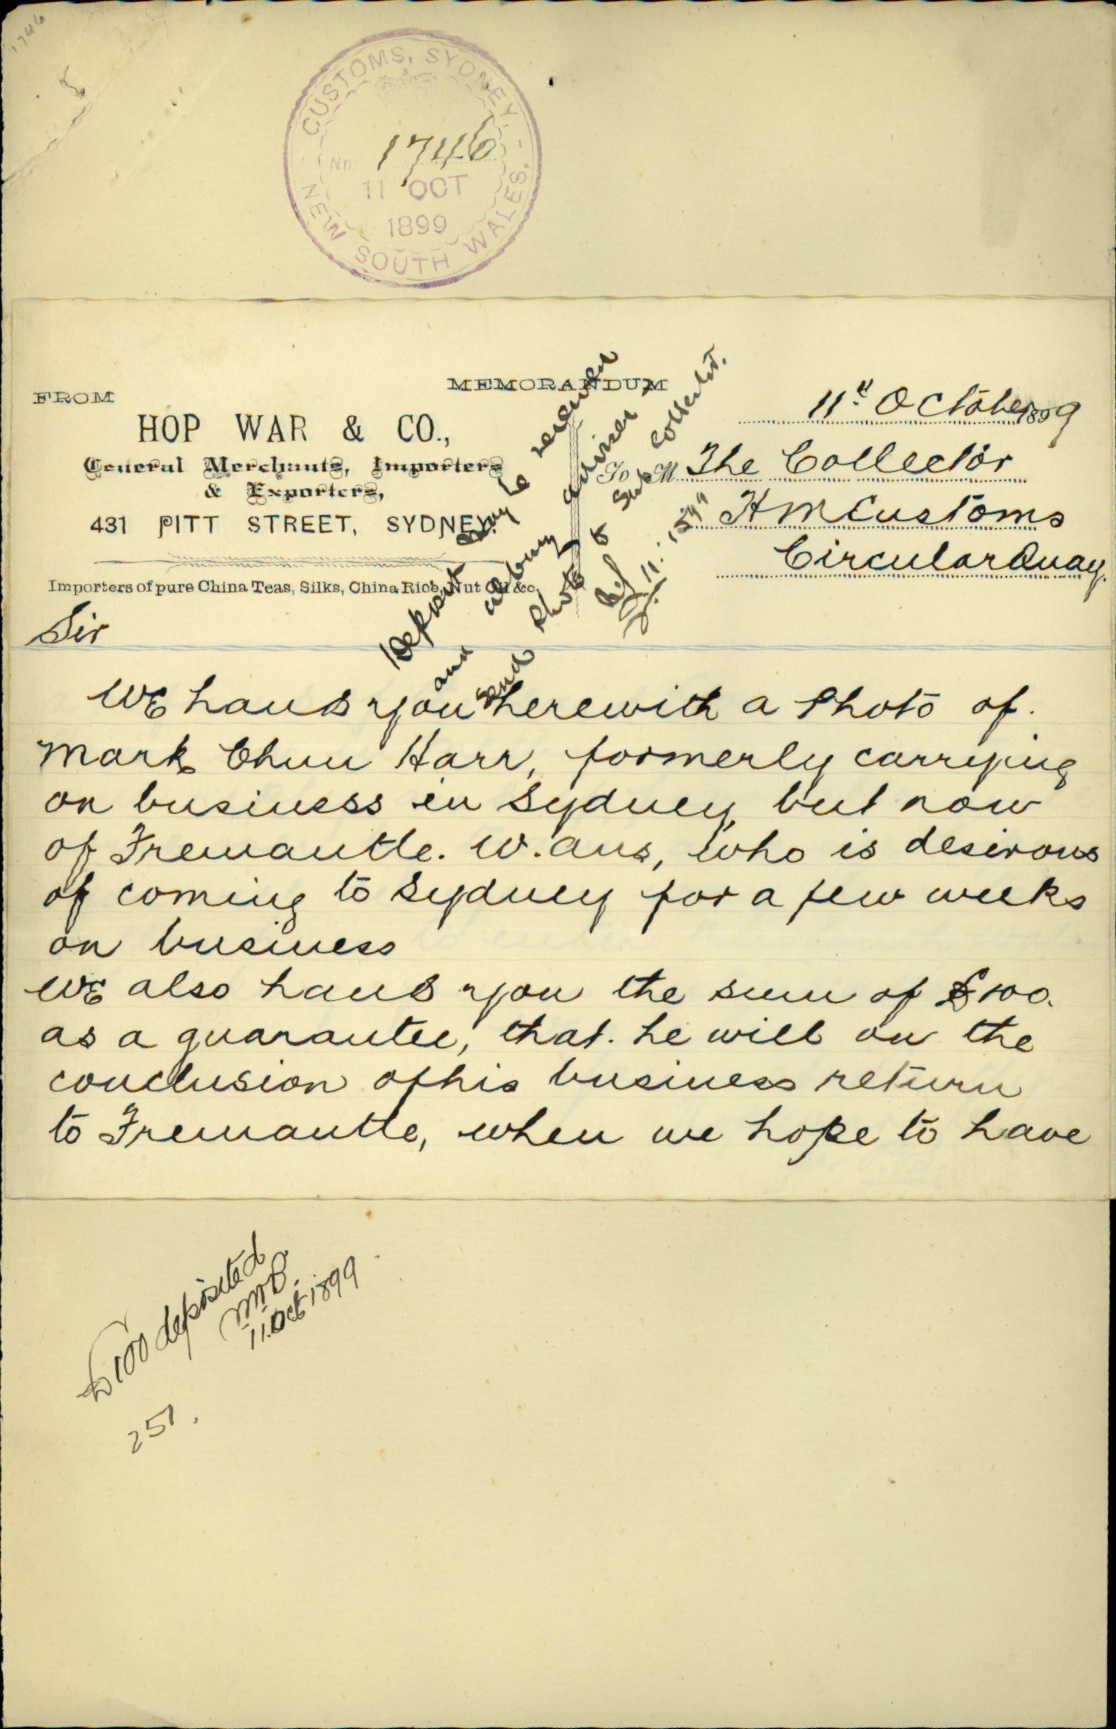 1746
CUSTOMS, SYDNEY.
No 1746
11 OCT
1899
NEW SOUTH WALES.
MEMORANDUM
FROM
HOP WAR & CO.,
General Merchants, Importers
& Exporters,
431 PITT STREET, SYDNEY.
Importers of pure China Teas, Silks, China Rice, Nut Oil &c.
11th October 1899
To M The Collector
H M Customs
Circular Quay.
Deposit may be received
and Albury advised
send photo to Sub Collector.
11. 1899
Sir
We hand you herewith a Photo of.
Mark Chun Harr, formerly carrying
on business in Sydney, but now
of Fremantle. W. Aus, who is desirous
of coming to Sydney for a few weeks
on business
We also hand you the sum of £100.
as a guarantee, that. he will on the
conclusion of his business return
to Fremantle, when we hope to have
£100 deposited
11 Oct 1899
257.